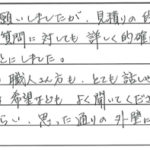 願いしましたが、見積りの
質問に対しても 詳しく的確
にしました。
職人さん方も、とても話し
希望なども よく聞いてくださ
らい、思った通りの外壁に